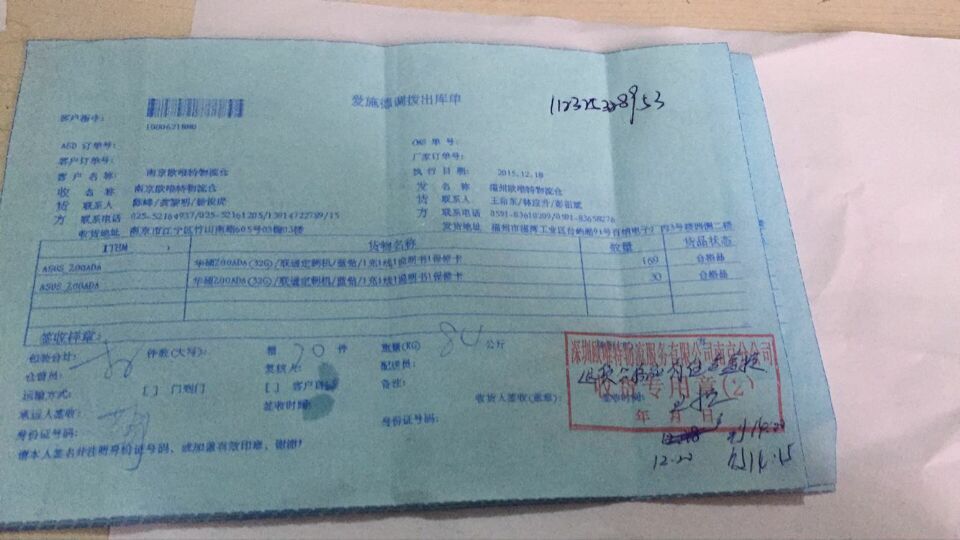 爱施德调拨出库单
112325228953
客户指令:
1000621880
ASD 订单号: OMS 单号:
客户订单号: 厂家订单号:
客户名称: 南京欧唯特物流仓 执行日期: 2015.12.18
收 名 称 南京欧唯特物流仓 发 名 称 福州欧唯特物流仓
货 联系人 货 联系人
方 联系电话 025-52164937/025-52161205/13814722739/15 方 联系电话 0591-83610209/0591-83658276
收货地址 南京市江宁区竹山南路605号03幢03楼 发货地址
ITEM 货物名称 数量 货品状态
ASUS_Z00ADA 华硕Z00ADA(32G)/联通定制机/蓝勃/1充1线1说明书1保修卡 160 合格品
ASUS_Z00ADA 华硕Z00ADA(32G)/联通定制机/蓝勃/1充1线1说明书1保修卡 30 合格品
签收样章:
包装合计: 件数(大写): 箱 20 件 重量(KG) 84 公斤
仓管员: 复核人: 配送员:
运输方式: [ ] 门到门 [ ] 客户自提 备注:
承运人签收: 签收时间: 收货人签收(盖章): 签收时间:
身份证号码: 身份证号码:
请本人签名并注明身份证号码、或加盖有效印章，谢谢!
深圳欧唯特物流服务有限公司南京分公司
收货专用章(2)
年 月 日
12.20 到14:00
14:15